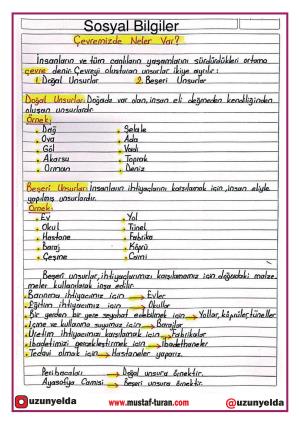 Sosyal Bilgiler
Çevremizde Neler Var?
İnsanların ve tüm canlıların yaşamlarını sürdürdükleri ortama
çevre denir. Çevreyi oluşturan unsurlar ikiye ayrılır:
1. Doğal Unsurlar 2. Beşeri Unsurlar
Doğal Unsurlar: Doğada var olan, insan eli değmeden kendiliğinden
oluşan unsurlardır.
Örnek:
Dağ Şelale
Ova Ada
Göl Vadi
Akarsu Toprak
Orman Deniz
Beşeri Unsurlar: İnsanların ihtiyaçlarını karşılamak için, insan eliyle
yapılmış unsurlardır.
Örnek:
Ev Yol
Okul Tünel
Hastane Fabrika
Baraj Köprü
Çeşme Cami
Beşeri unsurlar, ihtiyaçlarımızı karşılamamız için doğadaki malze-
meler kullanılarak inşa edilir.
Barınma ihtiyacımız için → Evler
Eğitim ihtiyacımız için → Okullar
Bir yerden bir yere seyahat edebilmek için → Yollar, köprüler, tüneller
İçme ve kullanma suyumuz için → Barajlar
Üretim ihtiyacımızı karşılamak için → Fabrikalar
İbadetimizi gerçekleştirmek için → İbadethaneler
Tedavi olmak için → Hastaneler yaparız.
Peribacaları → Doğal unsura örnektir.
Ayasofya Camisi → Beşeri unsura örnektir.
uzunyelda www.mustafa-turan.com @uzunyelda